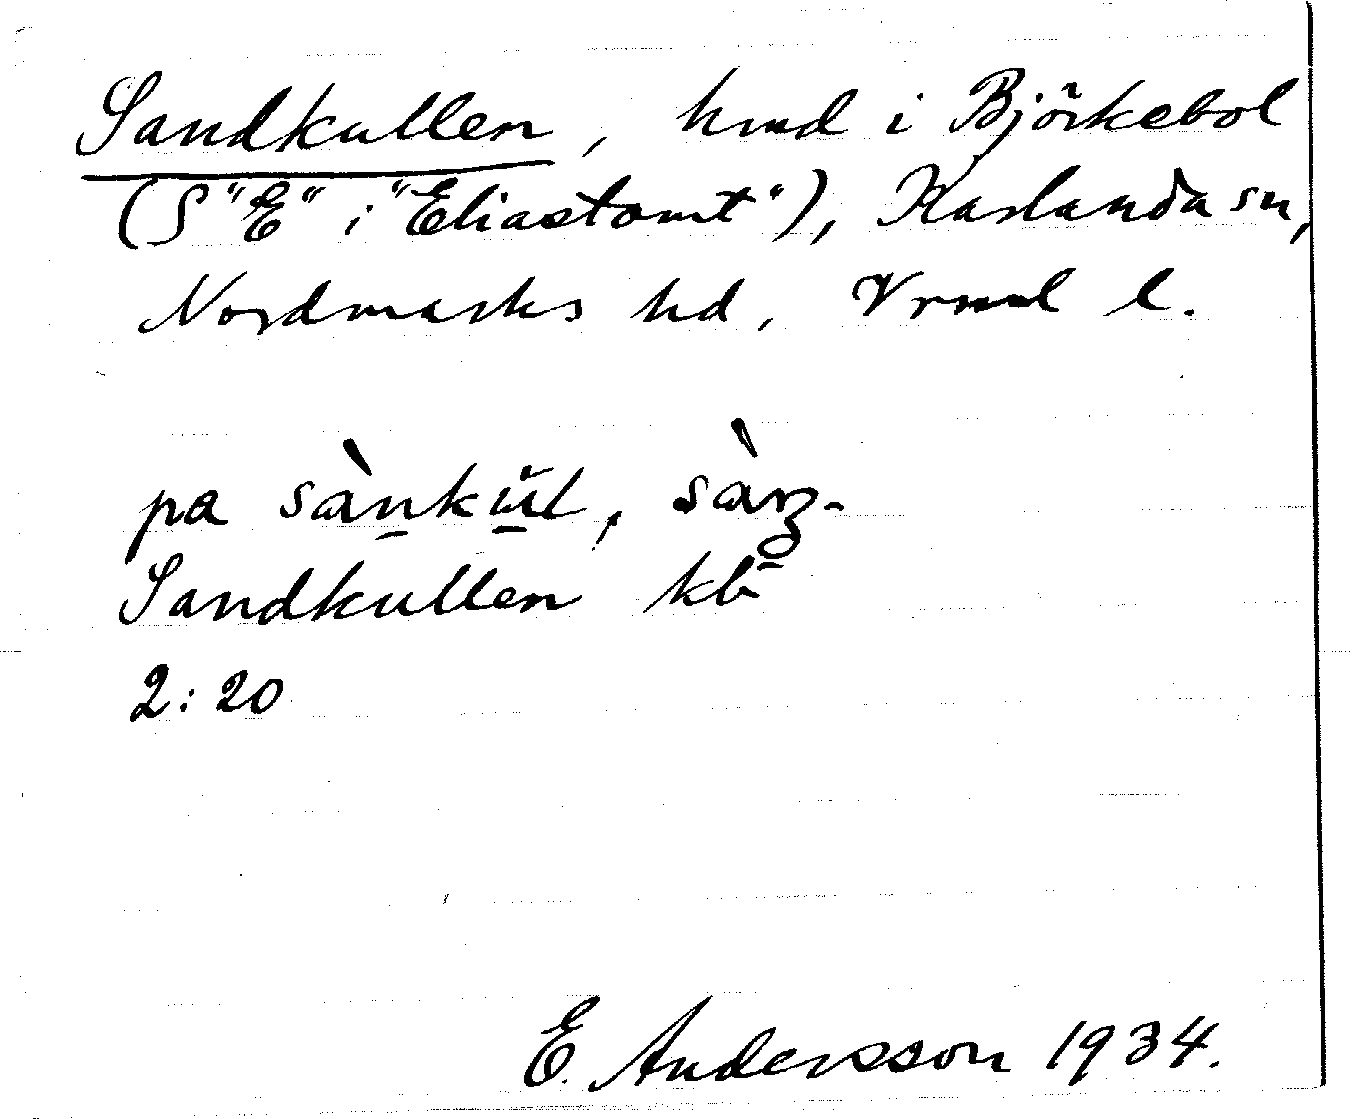 Sandkullen, hmd i Björkebol
(S "E" i "Eliastomt"), Karlanda sn,
Nordmarks hd, Vrml l.
pa sànkŭl, sàŋ-
Sandkullen kb
2:20
E. Andersson 1934.